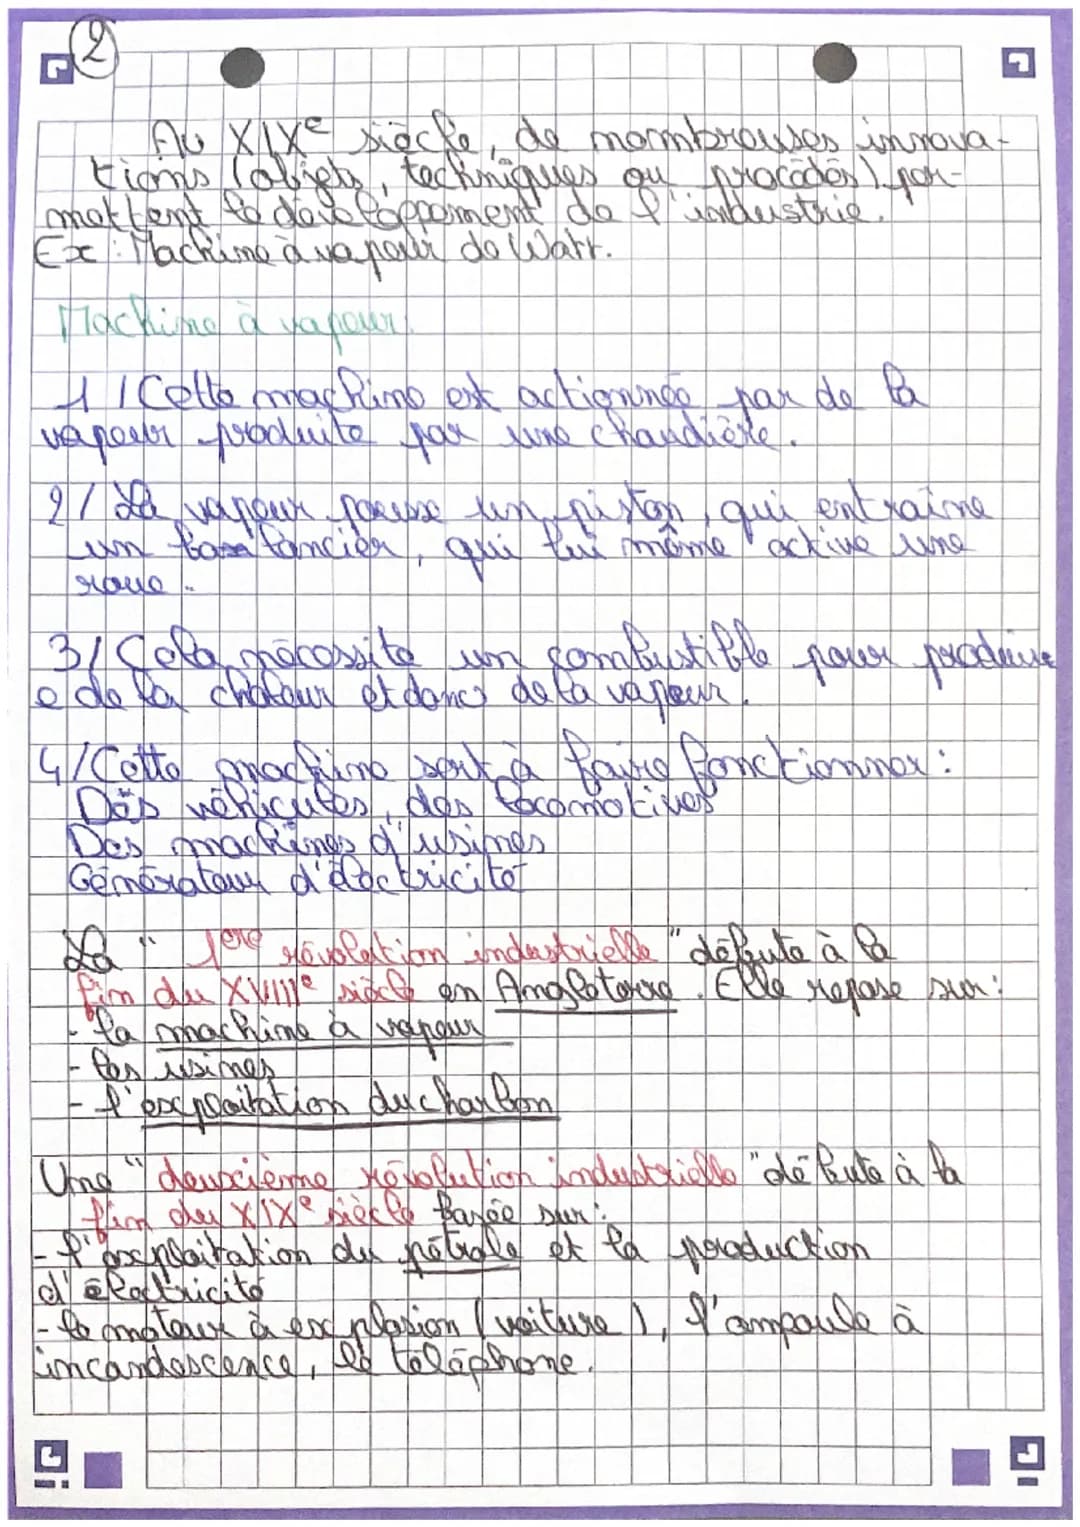 2
Au XIXe siècle, de nombreuses innova-
tions (objets, techniques ou procédés) per-
mettent le développement de l'industrie.
Ex : Machine à vapeur de Watt.
Machine à vapeur.
1/ Cette machine est actionnée par de la
vapeur produite par une chaudière.
2/ La vapeur pousse un piston, qui entraîne
un balancier, qui lui même active une
roue.
3/ Cela nécessite un combustible pour produire
e de la chaleur et donc de la vapeur.
4/ Cette machine sert à faire fonctionner :
Des véhicules, des locomotives
Des machines d'usines
Générateur d'électricité
La " 1ere révolution industrielle " débute à la
fin du XVIIIe siècle en Angleterre. Elle repose sur :
- la machine à vapeur
- les usines
- l'exploitation du charbon
Une " deuxième révolution industrielle " débute à la
fin du XIXe siècle basée sur :
- l'exploitation du pétrole et la production
d'électricité
- le moteur à explosion (voiture), l'ampoule à
incandescence, le téléphone.